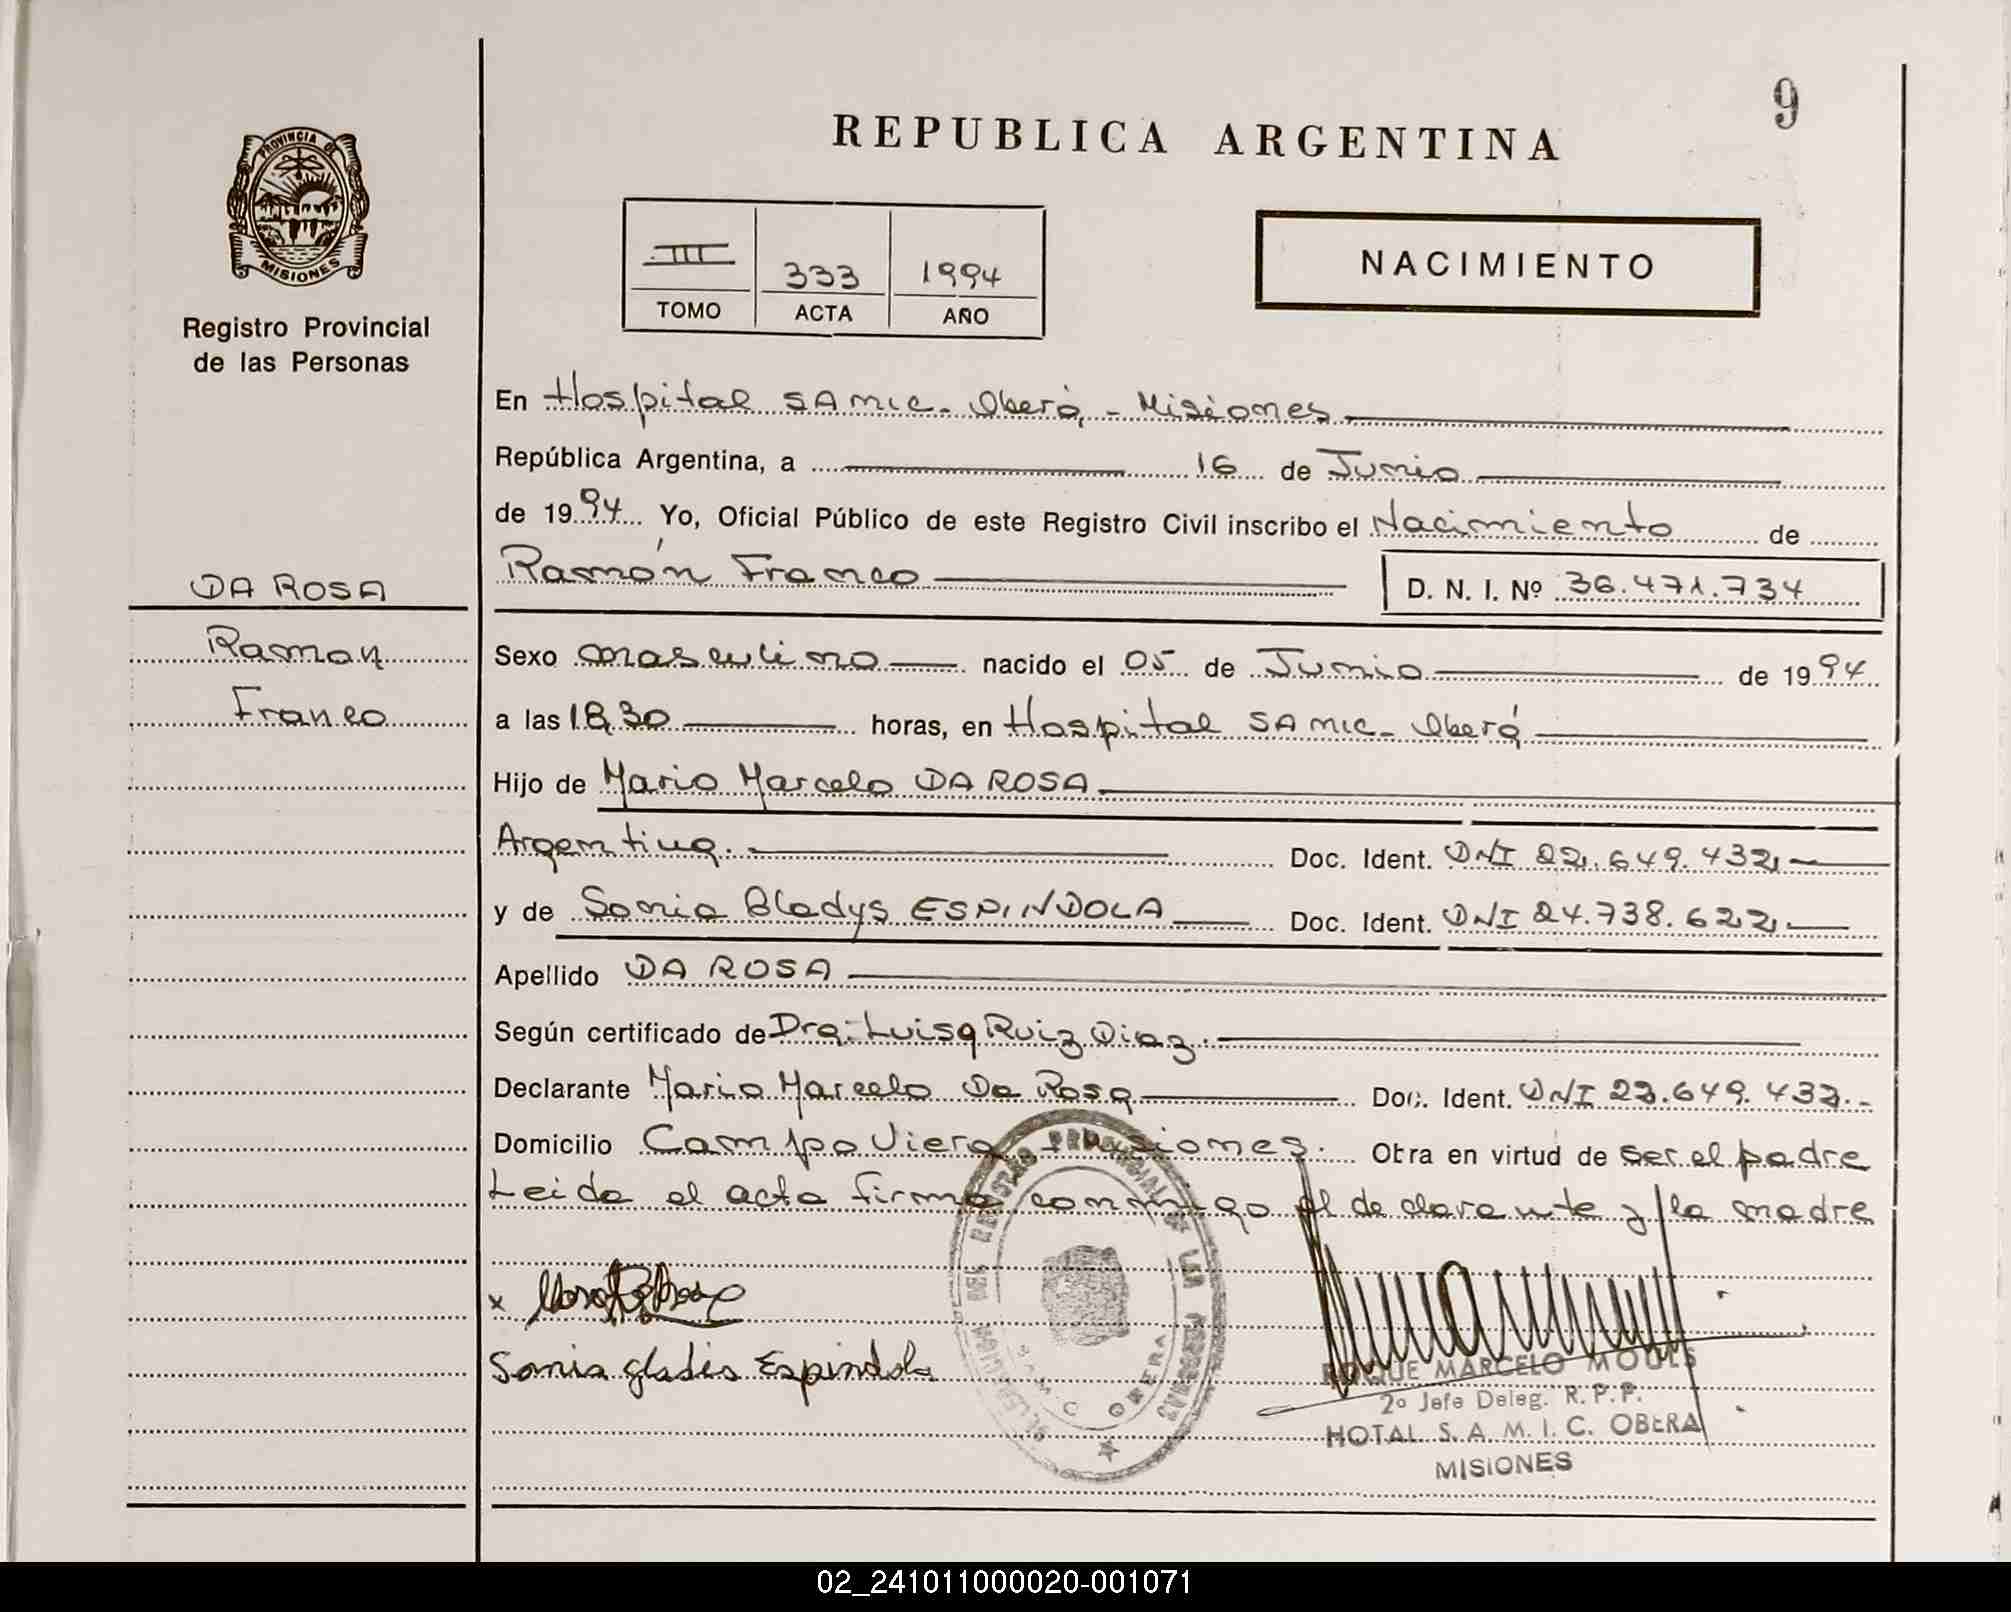 9
REPUBLICA ARGENTINA
PROVINCIA DE
MISIONES
Registro Provincial
de las Personas
III 333 1994
TOMO ACTA AÑO
NACIMIENTO
En Hospital SAMIC - Oberá - Misiones
República Argentina, a 16 de Junio
de 1994 Yo, Oficial Público de este Registro Civil inscribo el Nacimiento de
Ramón Franco D. N. I. Nº 36.471.734
DA ROSA
Ramon
Franco
Sexo masculino nacido el 05 de Junio de 1994
a las 18,30 horas, en Hospital SAMIC - Oberá
Hijo de Mario Marcelo DA ROSA
Argentina. Doc. Ident. DNI 22.649.432
y de Sonia Gladys ESPINDOLA Doc. Ident. DNI 24.738.622
Apellido DA ROSA
Según certificado de Dra. Luisa Ruiz Diaz.
Declarante Mario Marcelo Da Rosa Doc. Ident. DNI 22.649.432.-
Domicilio Campo Viera - Misiones. Obra en virtud de ser el padre
Leida el acta firma conmigo el declarante y la madre
x
Sonia gladis Espindola
DELEGACION DEL REGISTRO PROVINCIAL DE LAS PERSONAS
S.A.M.I.C. OBERA
ROQUE MARCELO
2º Jefe Deleg. R. P. P.
HOTAL S. A. M. I. C. OBERA
MISIONES
02_241011000020-001071